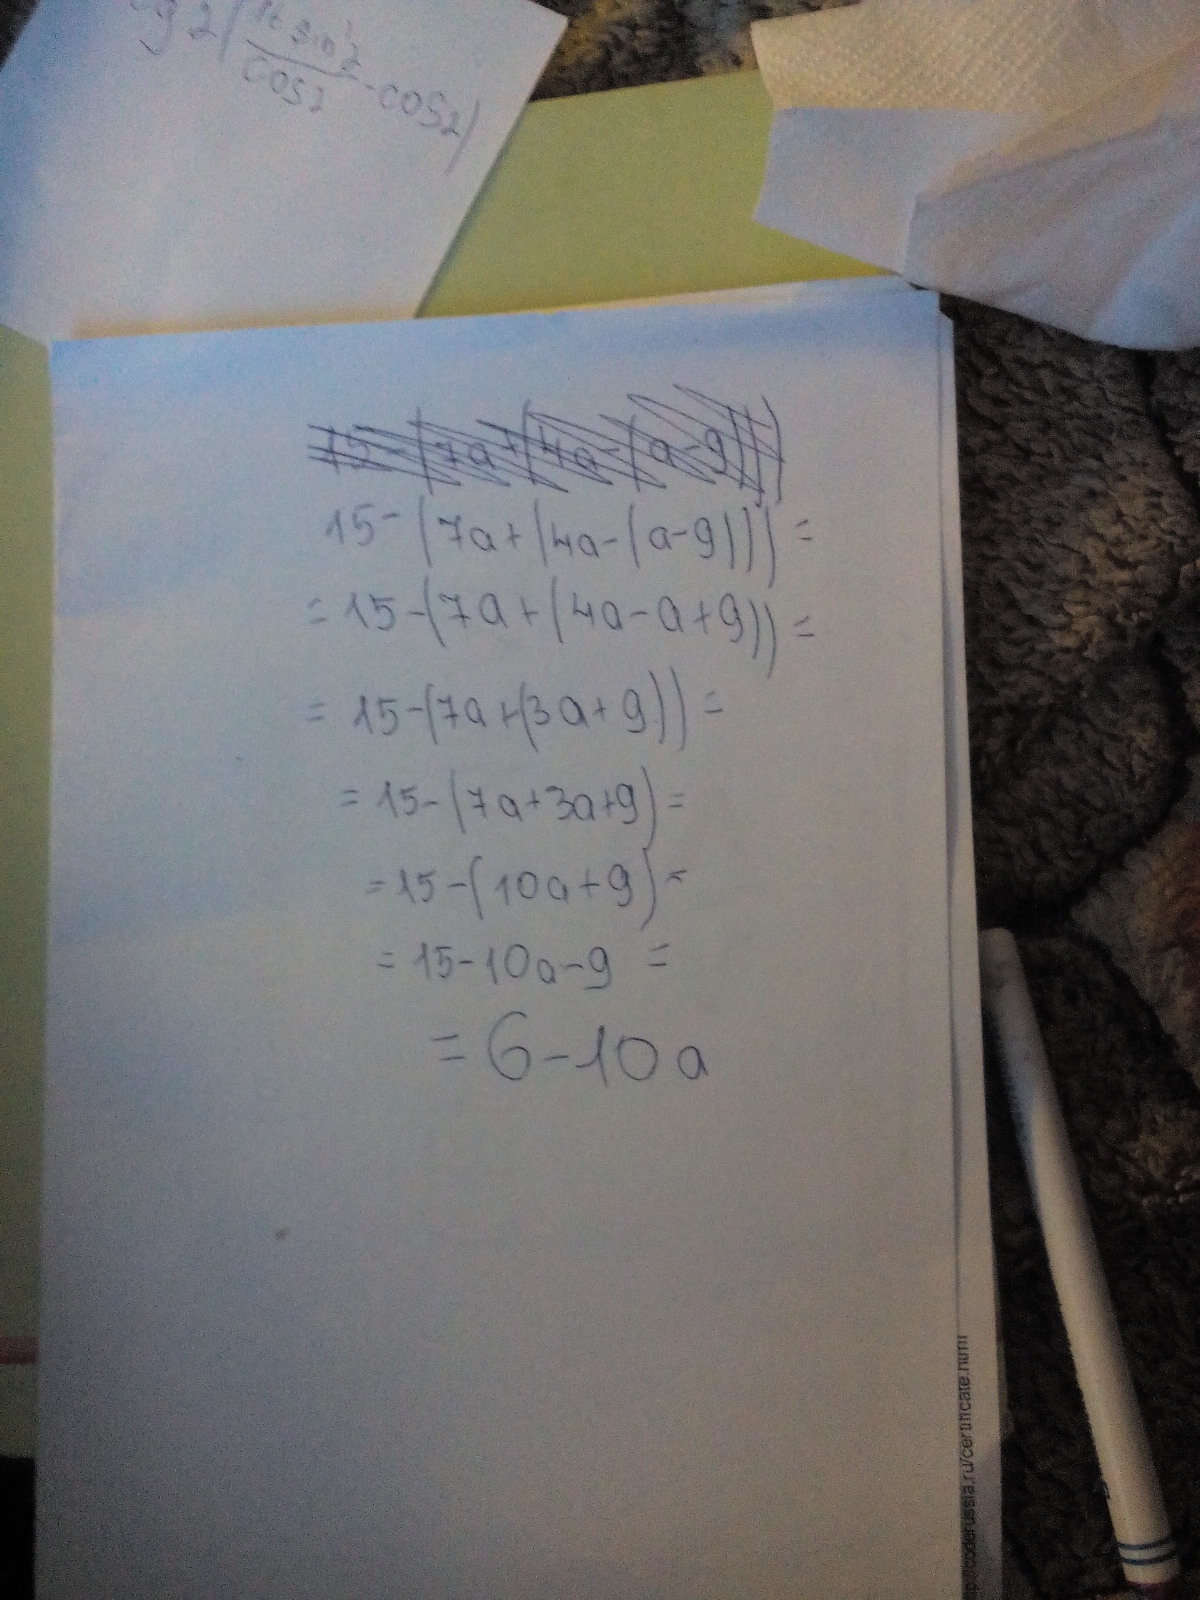 g2(1+sin2/cos2 - cos2)
15-(7a+(4a-(a-9)))
15-(7a+(4a-(a-9)))=
=15-(7a+(4a-a+9))=
=15-(7a+(3a+9))=
=15-(7a+3a+9)=
=15-(10a+9)=
=15-10a-9=
=6-10a
coderussia.ru/certificate.html